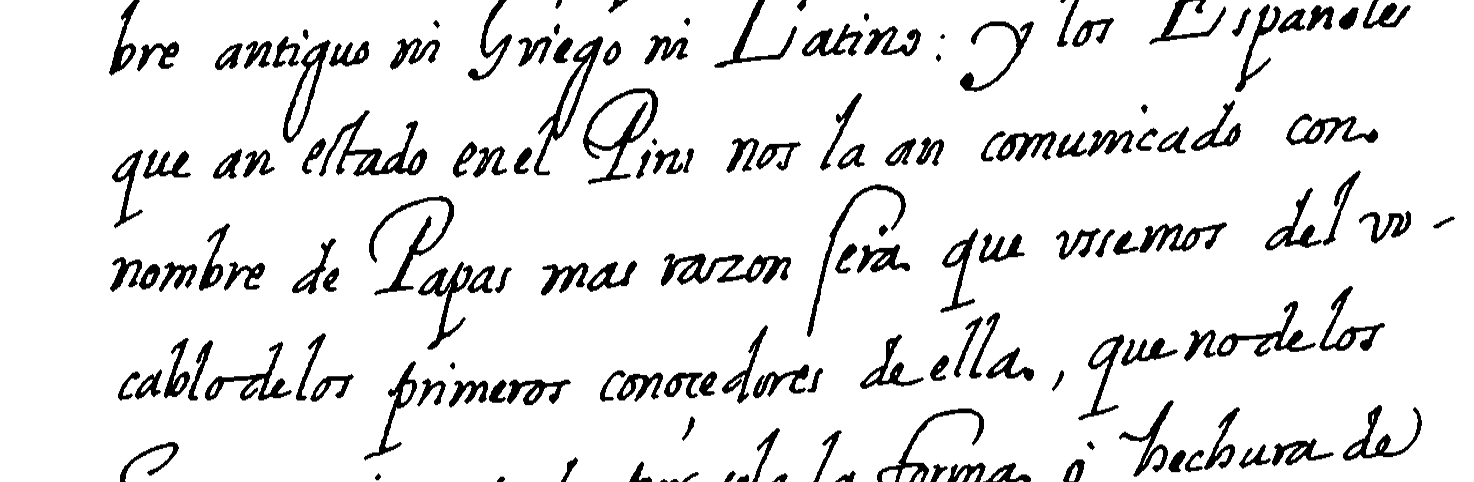 bre antiguo ni Griego ni Latino: y los Españoles
que an estado en el Piru nos la an comunicado con
nombre de Papas mas razon sera que vssemos del vo-
cablo de los primeros conocedores de ella, que no de los
la forma, o hechura de